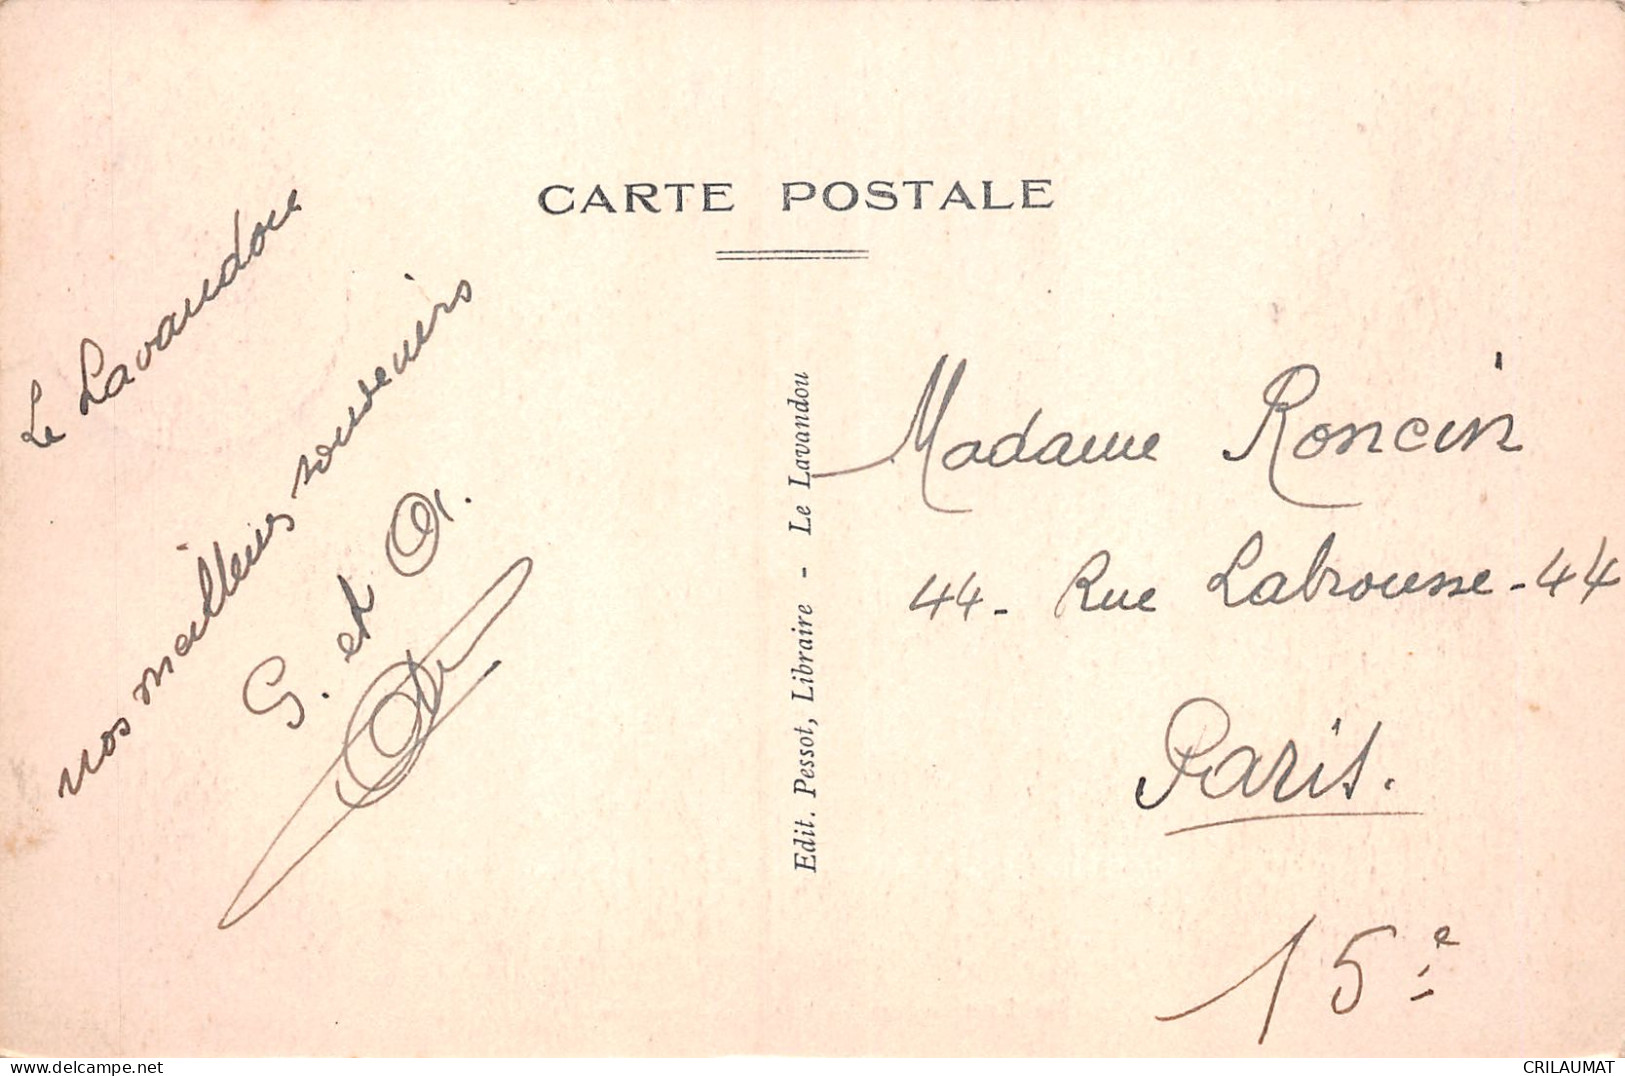 CARTE POSTALE
Le Lavandou
nos meilleurs souvenirs
G. et
Edit. Pessot, Libraire - Le Lavandou
Madame Roncin
44 - Rue Labrousse - 44
Paris.
15e
CRILAUMAT